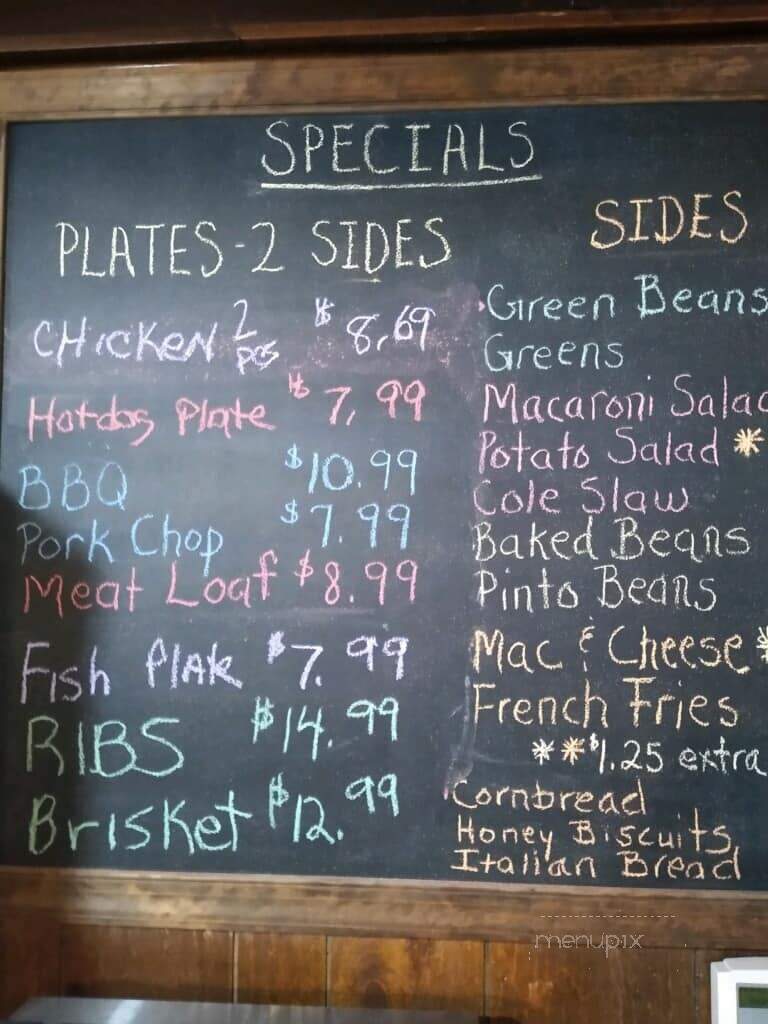 SPECIALS
PLATES-2 SIDES
CHICKEN 2 pcs $8.69
Hotdog Plate $7.99
BBQ $10.99
Pork Chop $7.99
Meat Loaf $8.99
Fish Plate $7.99
RIBS $14.99
Brisket $12.99
SIDES
Green Beans
Greens
Macaroni Salad
Potato Salad *
Cole Slaw
Baked Beans
Pinto Beans
Mac & Cheese *
French Fries
* *$1.25 extra
Cornbread
Honey Biscuits,
Italian Bread
menupix